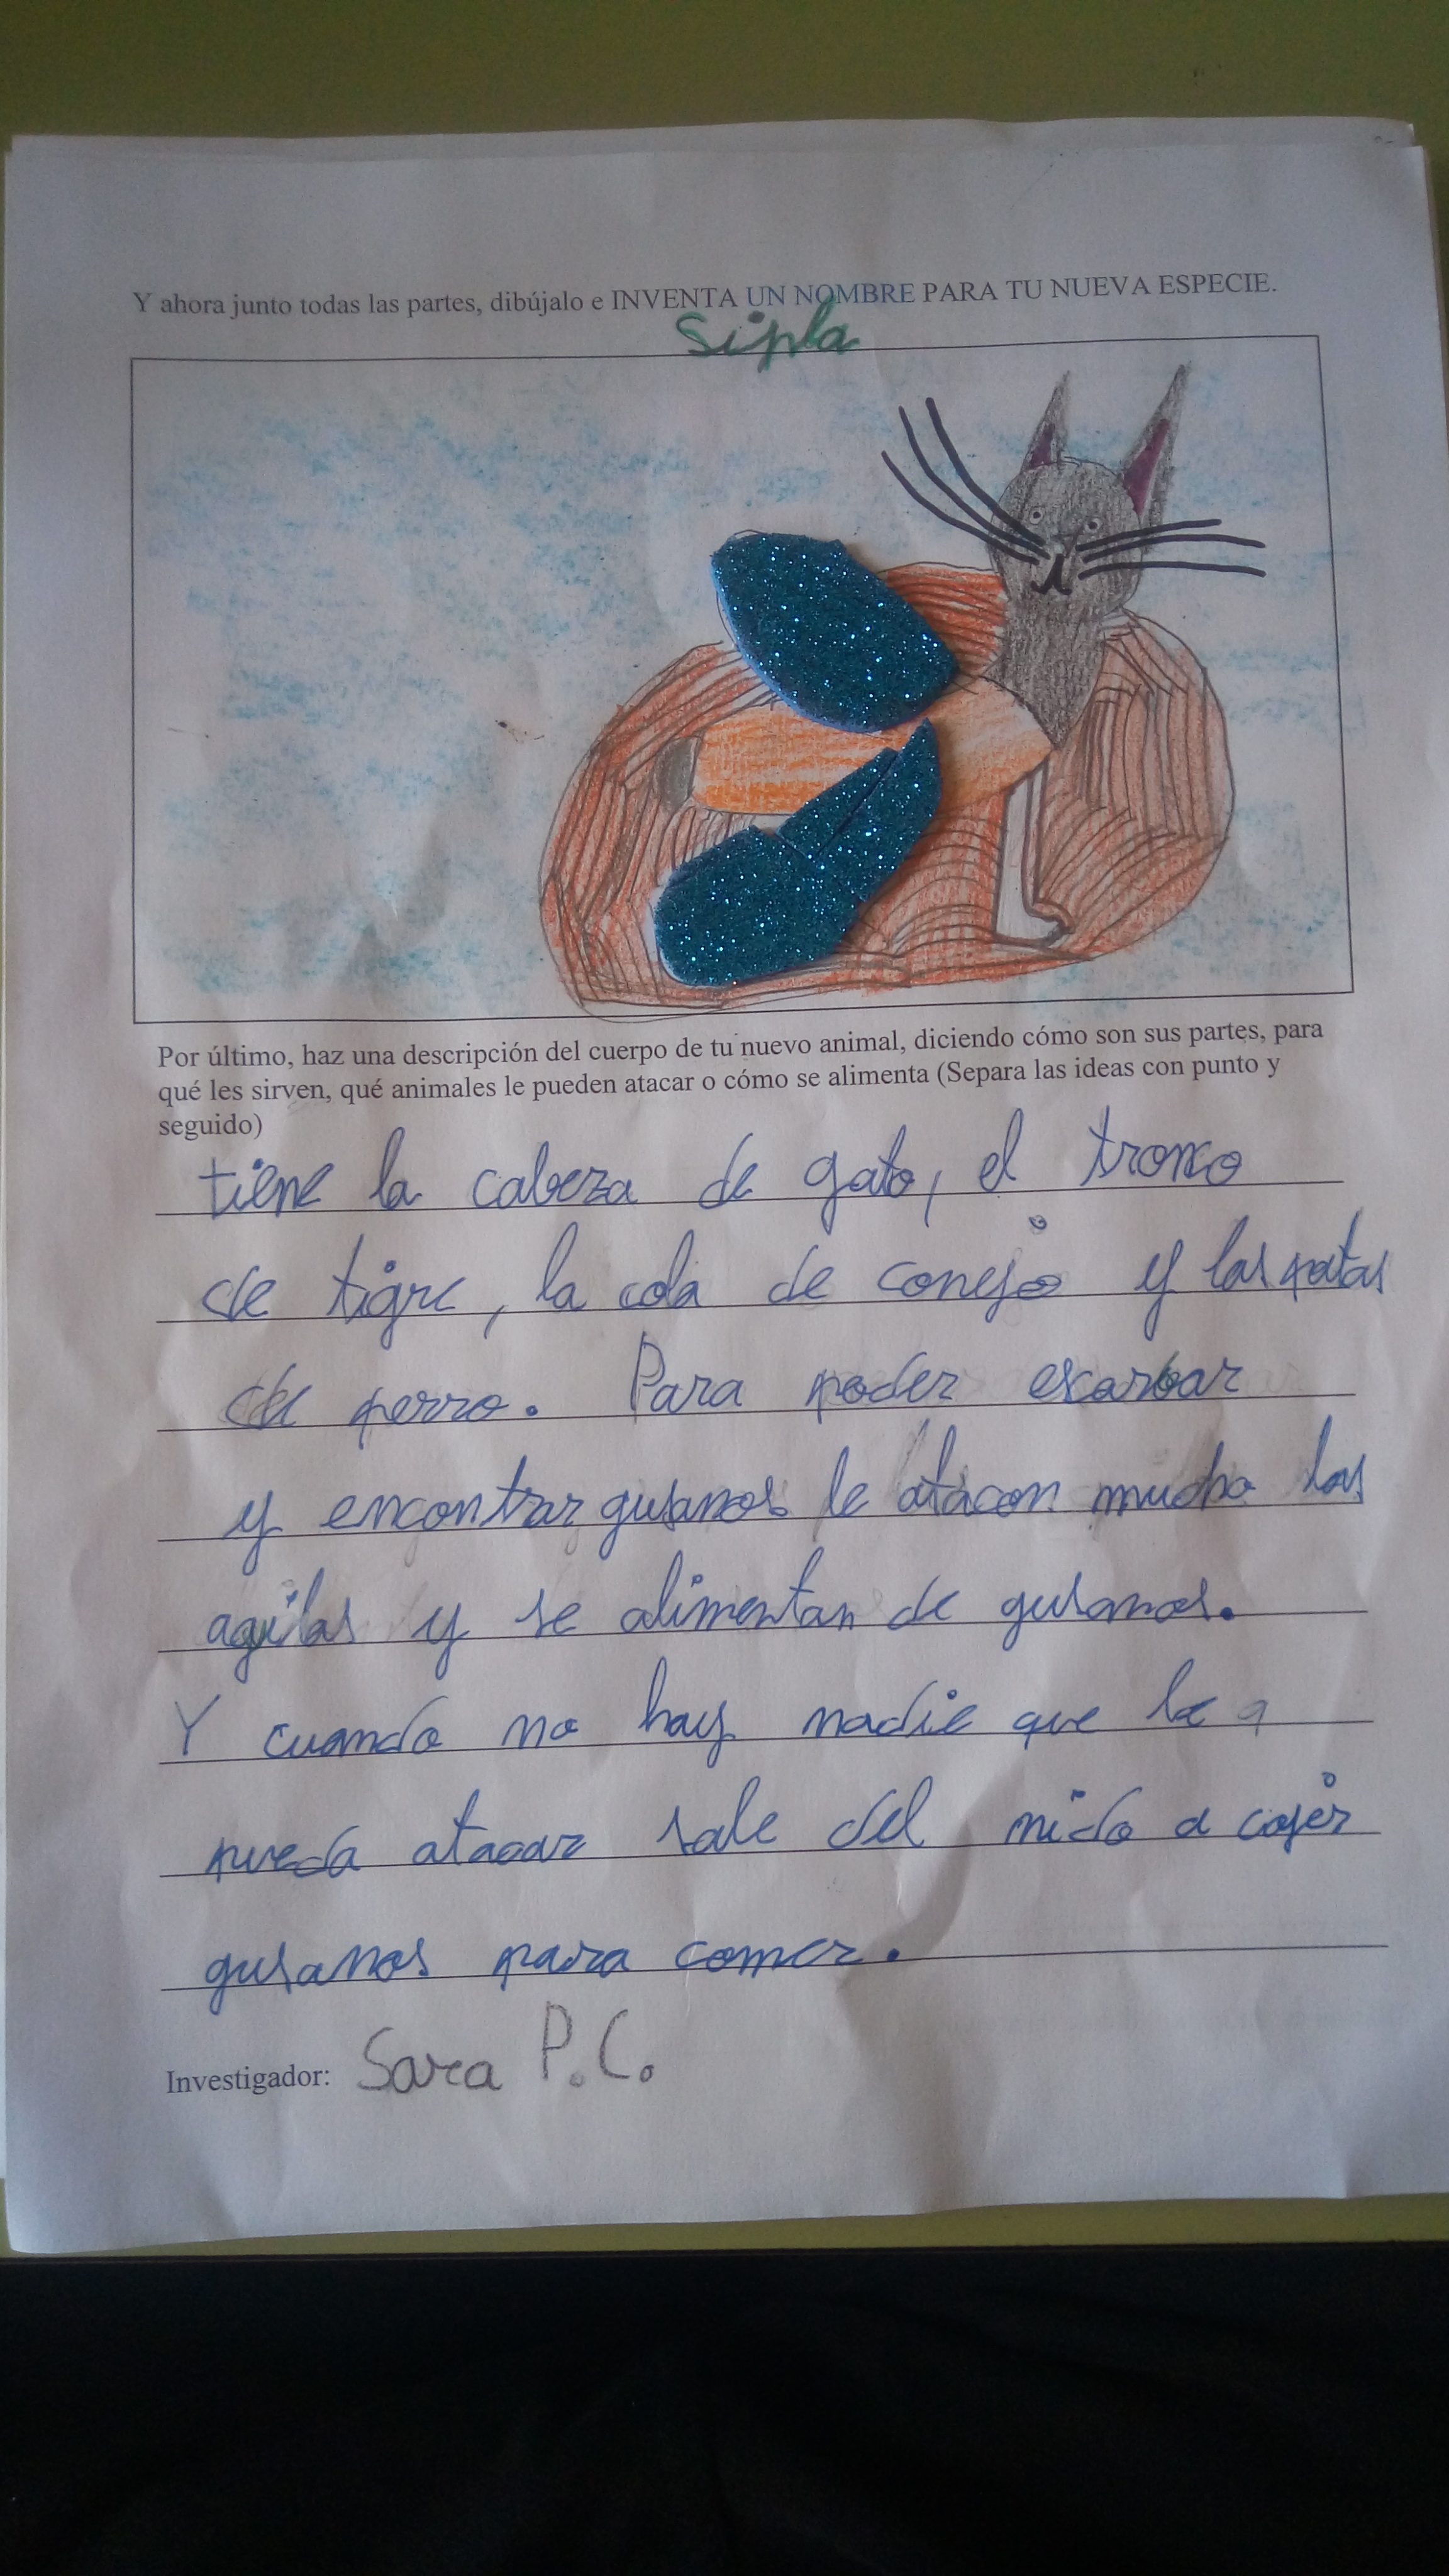 Y ahora junto todas las partes, dibújalo e INVENTA UN NOMBRE PARA TU NUEVA ESPECIE.
Sipla
Por último, haz una descripción del cuerpo de tu nuevo animal, diciendo cómo son sus partes, para
qué les sirven, qué animales le pueden atacar o cómo se alimenta (Separa las ideas con punto y
seguido)
tiene la cabeza de gato, el tronco
de tigre, la cola de conejo y las patas
de perro. Para poder escarbar
y encontrar gusanos le atacan mucho las
aguilas y se alimentan de gusanos.
Y cuando no hay nadie que le a
pueda atacar sale del nido a cojer
gusanos para comer.
Investigador: Sara P.C.